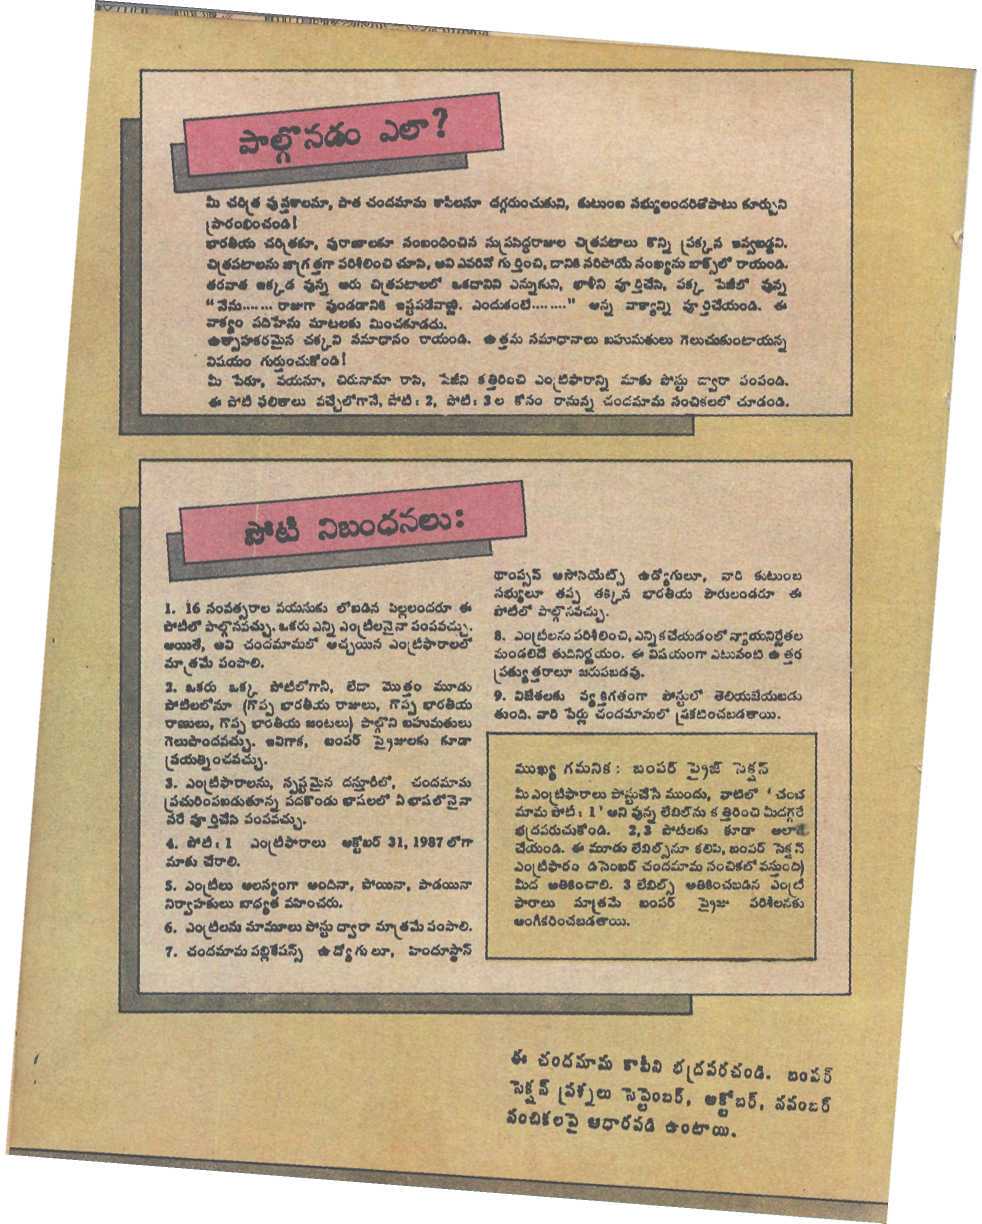 పాల్గొనడం ఎలా?
మీ చరిత్ర పుస్తకాలనూ, పాత చందమామ కాపీలనూ దగ్గరుంచుకుని, కుటుంబ సభ్యులందరితోపాటు కూర్చుని
ప్రారంభించండి!
భారతీయ చరిత్రకూ, పురాణాలకూ సంబంధించిన సుప్రసిద్ధరాజుల చిత్రపటాలు కొన్ని ప్రక్కన ఇవ్వబడ్డవి.
చిత్రపటాలను జాగ్రత్తగా పరిశీలించి చూసి, అవి ఎవరివో గుర్తించి, దానికి సరిపోయే సంఖ్యను బాక్స్‌లో రాయండి.
తరవాత ఇక్కడ వున్న ఆరు చిత్రపటాలలో ఒకదానిని ఎన్నుకుని, ఖాళీని పూర్తిచేసి, పక్క పేజీలో వున్న
“నేను....... రాజుగా వుండడానికి ఇష్టపడేవాణ్ణి. ఎందుకంటే........” అన్న వాక్యాన్ని పూర్తిచేయండి. ఈ
వాక్యం పదిహేను మాటలకు మించకూడదు.
ఉత్సాహకరమైన చక్కని సమాధానం రాయండి. ఉత్తమ సమాధానాలు బహుమతులు గెలుచుకుంటాయన్న
విషయం గుర్తుంచుకోండి!
మీ పేరూ, వయసూ, చిరునామా రాసి, పేజీని కత్తిరించి ఎంట్రీఫారాన్ని మాకు పోస్టు ద్వారా పంపండి.
ఈ పోటీ ఫలితాలు వచ్చేలోగానే, పోటీ: 2, పోటీ: 3ల కోసం రానున్న చందమామ సంచికలలో చూడండి.
పోటీ నిబంధనలు:
1. 16 సంవత్సరాల వయసుకు లోబడిన పిల్లలందరూ ఈ
పోటీలో పాల్గొనవచ్చు. ఒకరు ఎన్ని ఎంట్రీలనైనా పంపవచ్చు.
అయితే, అవి చందమామలో అచ్చయిన ఎంట్రీఫారాలలో
మాత్రమే పంపాలి.
2. ఒకరు ఒక్క పోటీలోగాని, లేదా మొత్తం మూడు
పోటీలలోనూ (గొప్ప భారతీయ రాజులు, గొప్ప భారతీయ
రాణులు, గొప్ప భారతీయ జంటలు) పాల్గొని బహుమతులు
గెలుపొందవచ్చు. ఇవిగాక, బంపర్ ప్రైజులకు కూడా
ప్రయత్నించవచ్చు.
3. ఎంట్రీఫారాలను, స్పష్టమైన దస్తూరీలో, చందమామ
ప్రచురింపబడుతూన్న పదకొండు భాషలలో ఏ భాషలోనైనా
సరే పూర్తిచేసి పంపవచ్చు.
4. పోటీ: 1 ఎంట్రీఫారాలు అక్టోబర్ 31, 1987 లోగా
మాకు చేరాలి.
5. ఎంట్రీలు ఆలస్యంగా అందినా, పోయినా, పాడయినా
నిర్వాహకులు బాధ్యత వహించరు.
6. ఎంట్రీలను మామూలు పోస్టు ద్వారా మాత్రమే పంపాలి.
7. చందమామ పబ్లికేషన్స్ ఉద్యోగులూ, హిందూస్థాన్
థాంప్సన్ అసోసియేట్స్ ఉద్యోగులూ, వారి కుటుంబ
సభ్యులూ తప్ప తక్కిన భారతీయ పౌరులందరూ ఈ
పోటీలో పాల్గొనవచ్చు.
8. ఎంట్రీలను పరిశీలించి, ఎన్నికచేయడంలో న్యాయనిర్ణేతల
మండలిదే తుదినిర్ణయం. ఈ విషయంగా ఎటువంటి ఉత్తర
ప్రత్యుత్తరాలూ జరుపబడవు.
9. విజేతలకు వ్యక్తిగతంగా పోస్టులో తెలియజేయబడు
తుంది. వారి పేర్లు చందమామలో ప్రకటించబడతాయి.
ముఖ్య గమనిక: బంపర్ ప్రైజ్ సెక్షన్
మీ ఎంట్రీఫారాలు పోస్టుచేసే ముందు, వాటిలో ‘చంద
మామ పోటీ: 1’ అని వున్న లేబిల్‌ను కత్తిరించి మీదగ్గరే
భద్రపరుచుకోండి. 2,3 పోటీలకు కూడా అలాగే
చేయండి. ఈ మూడు లేబిల్స్‌నూ కలిపి, బంపర్ సెక్షన్
ఎంట్రీఫారం డిసెంబర్ చందమామ సంచికలో వస్తుంది)
మీద అతికించాలి. 3 లేబిల్స్ అతికించబడిన ఎంట్రీ
ఫారాలు మాత్రమే బంపర్ ప్రైజు పరిశీలనకు
అంగీకరించబడతాయి.
ఈ చందమామ కాపీని భద్రపరచండి. బంపర్
సెక్షన్ ప్రశ్నలు సెప్టెంబర్, అక్టోబర్, నవంబర్
సంచికలపై ఆధారపడి ఉంటాయి.